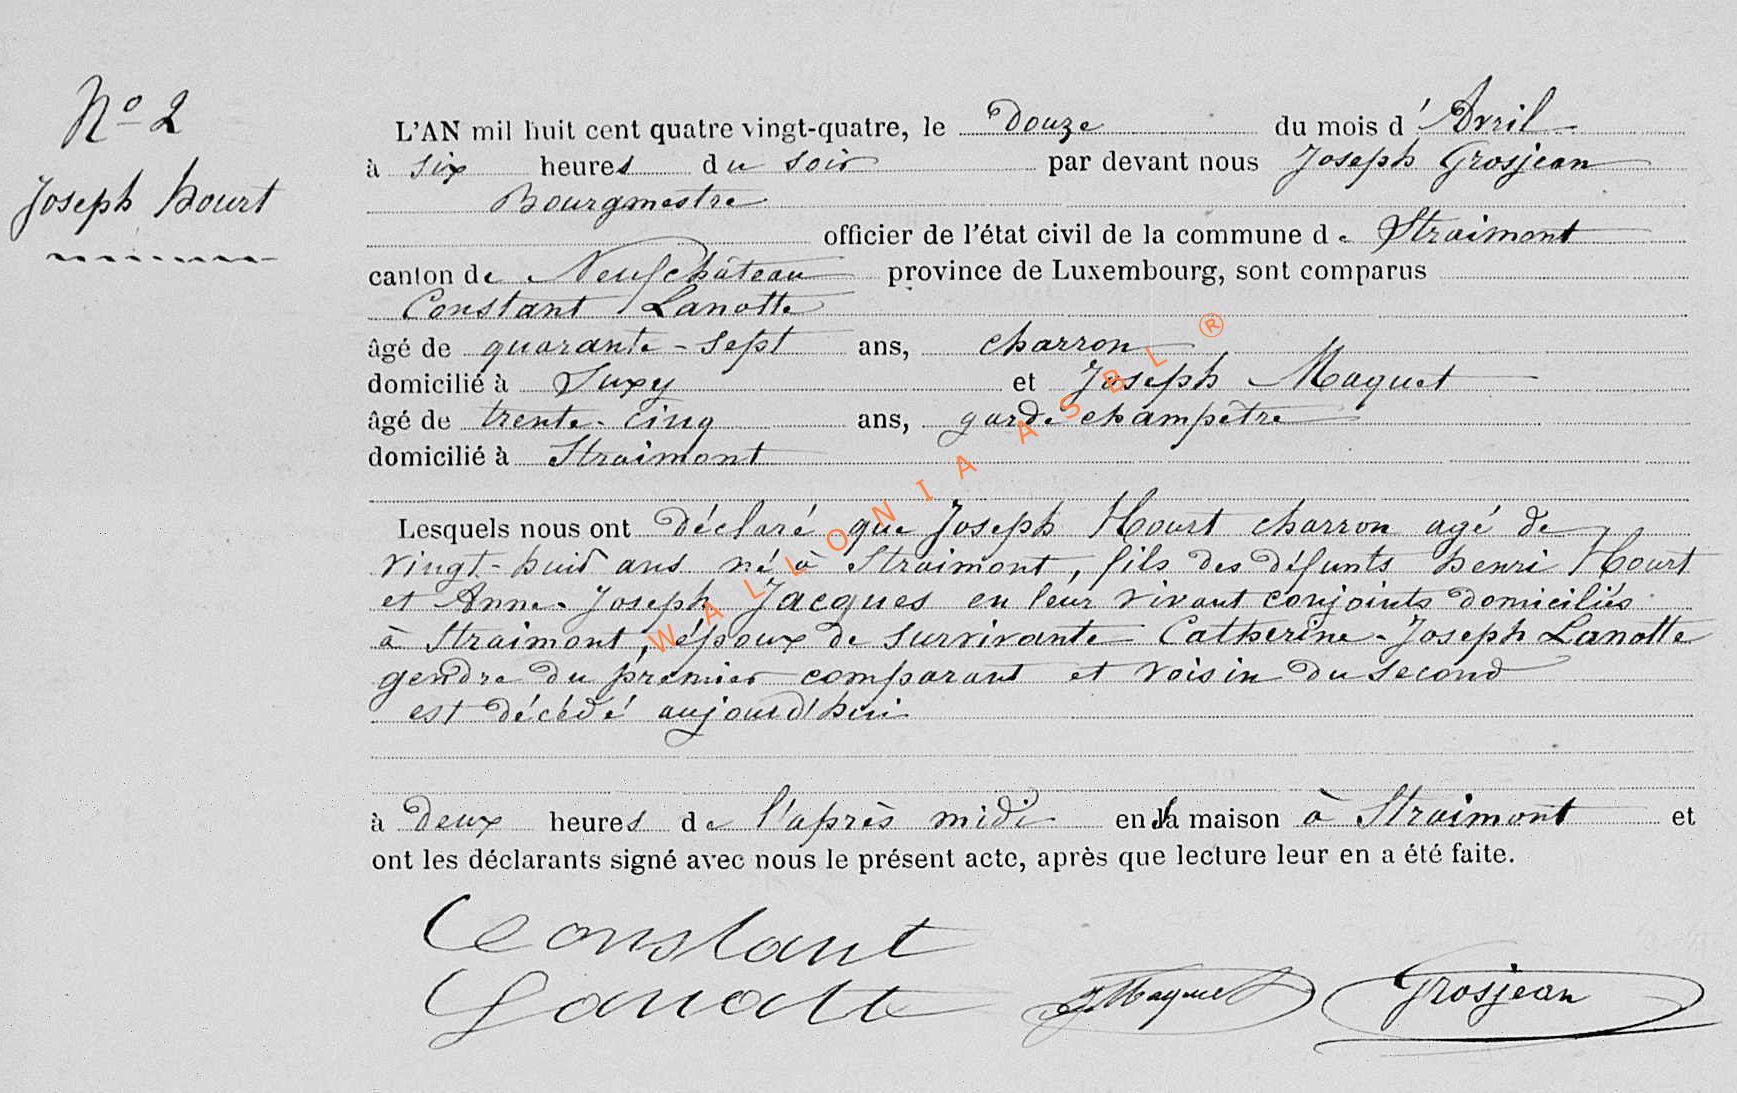 N° 2
Joseph hourt
L'AN mil huit cent quatre vingt-quatre, le Douze du mois d'Avril
à six heures du soir par devant nous Joseph Grosjean
Bourgmestre
officier de l'état civil de la commune de Straimont
canton de Neufchâteau province de Luxembourg, sont comparus
Constant Lanotte
âgé de quarante-sept ans, charron
domicilié à Suxy et Joseph Maquet
âgé de trente-cinq ans, garde champêtre
domicilié à Straimont
Lesquels nous ont déclaré que Joseph Hourt charron agé de
vingt-huit ans né à Straimont, fils des défunts henri Hourt
et Anne-Joseph Jacques en leur vivant conjoints domiciliés
à Straimont, époux de survivante Catherine-Joseph Lanotte
gendre du premier comparant et voisin du second
est décédé aujourd'hui
à deux heures de l'après midi en sa maison à Straimont et
ont les déclarants signé avec nous le présent acte, après que lecture leur en a été faite.
Constant
Lanotte
J. Maquet Grosjean
WALLONIA ASBL ®